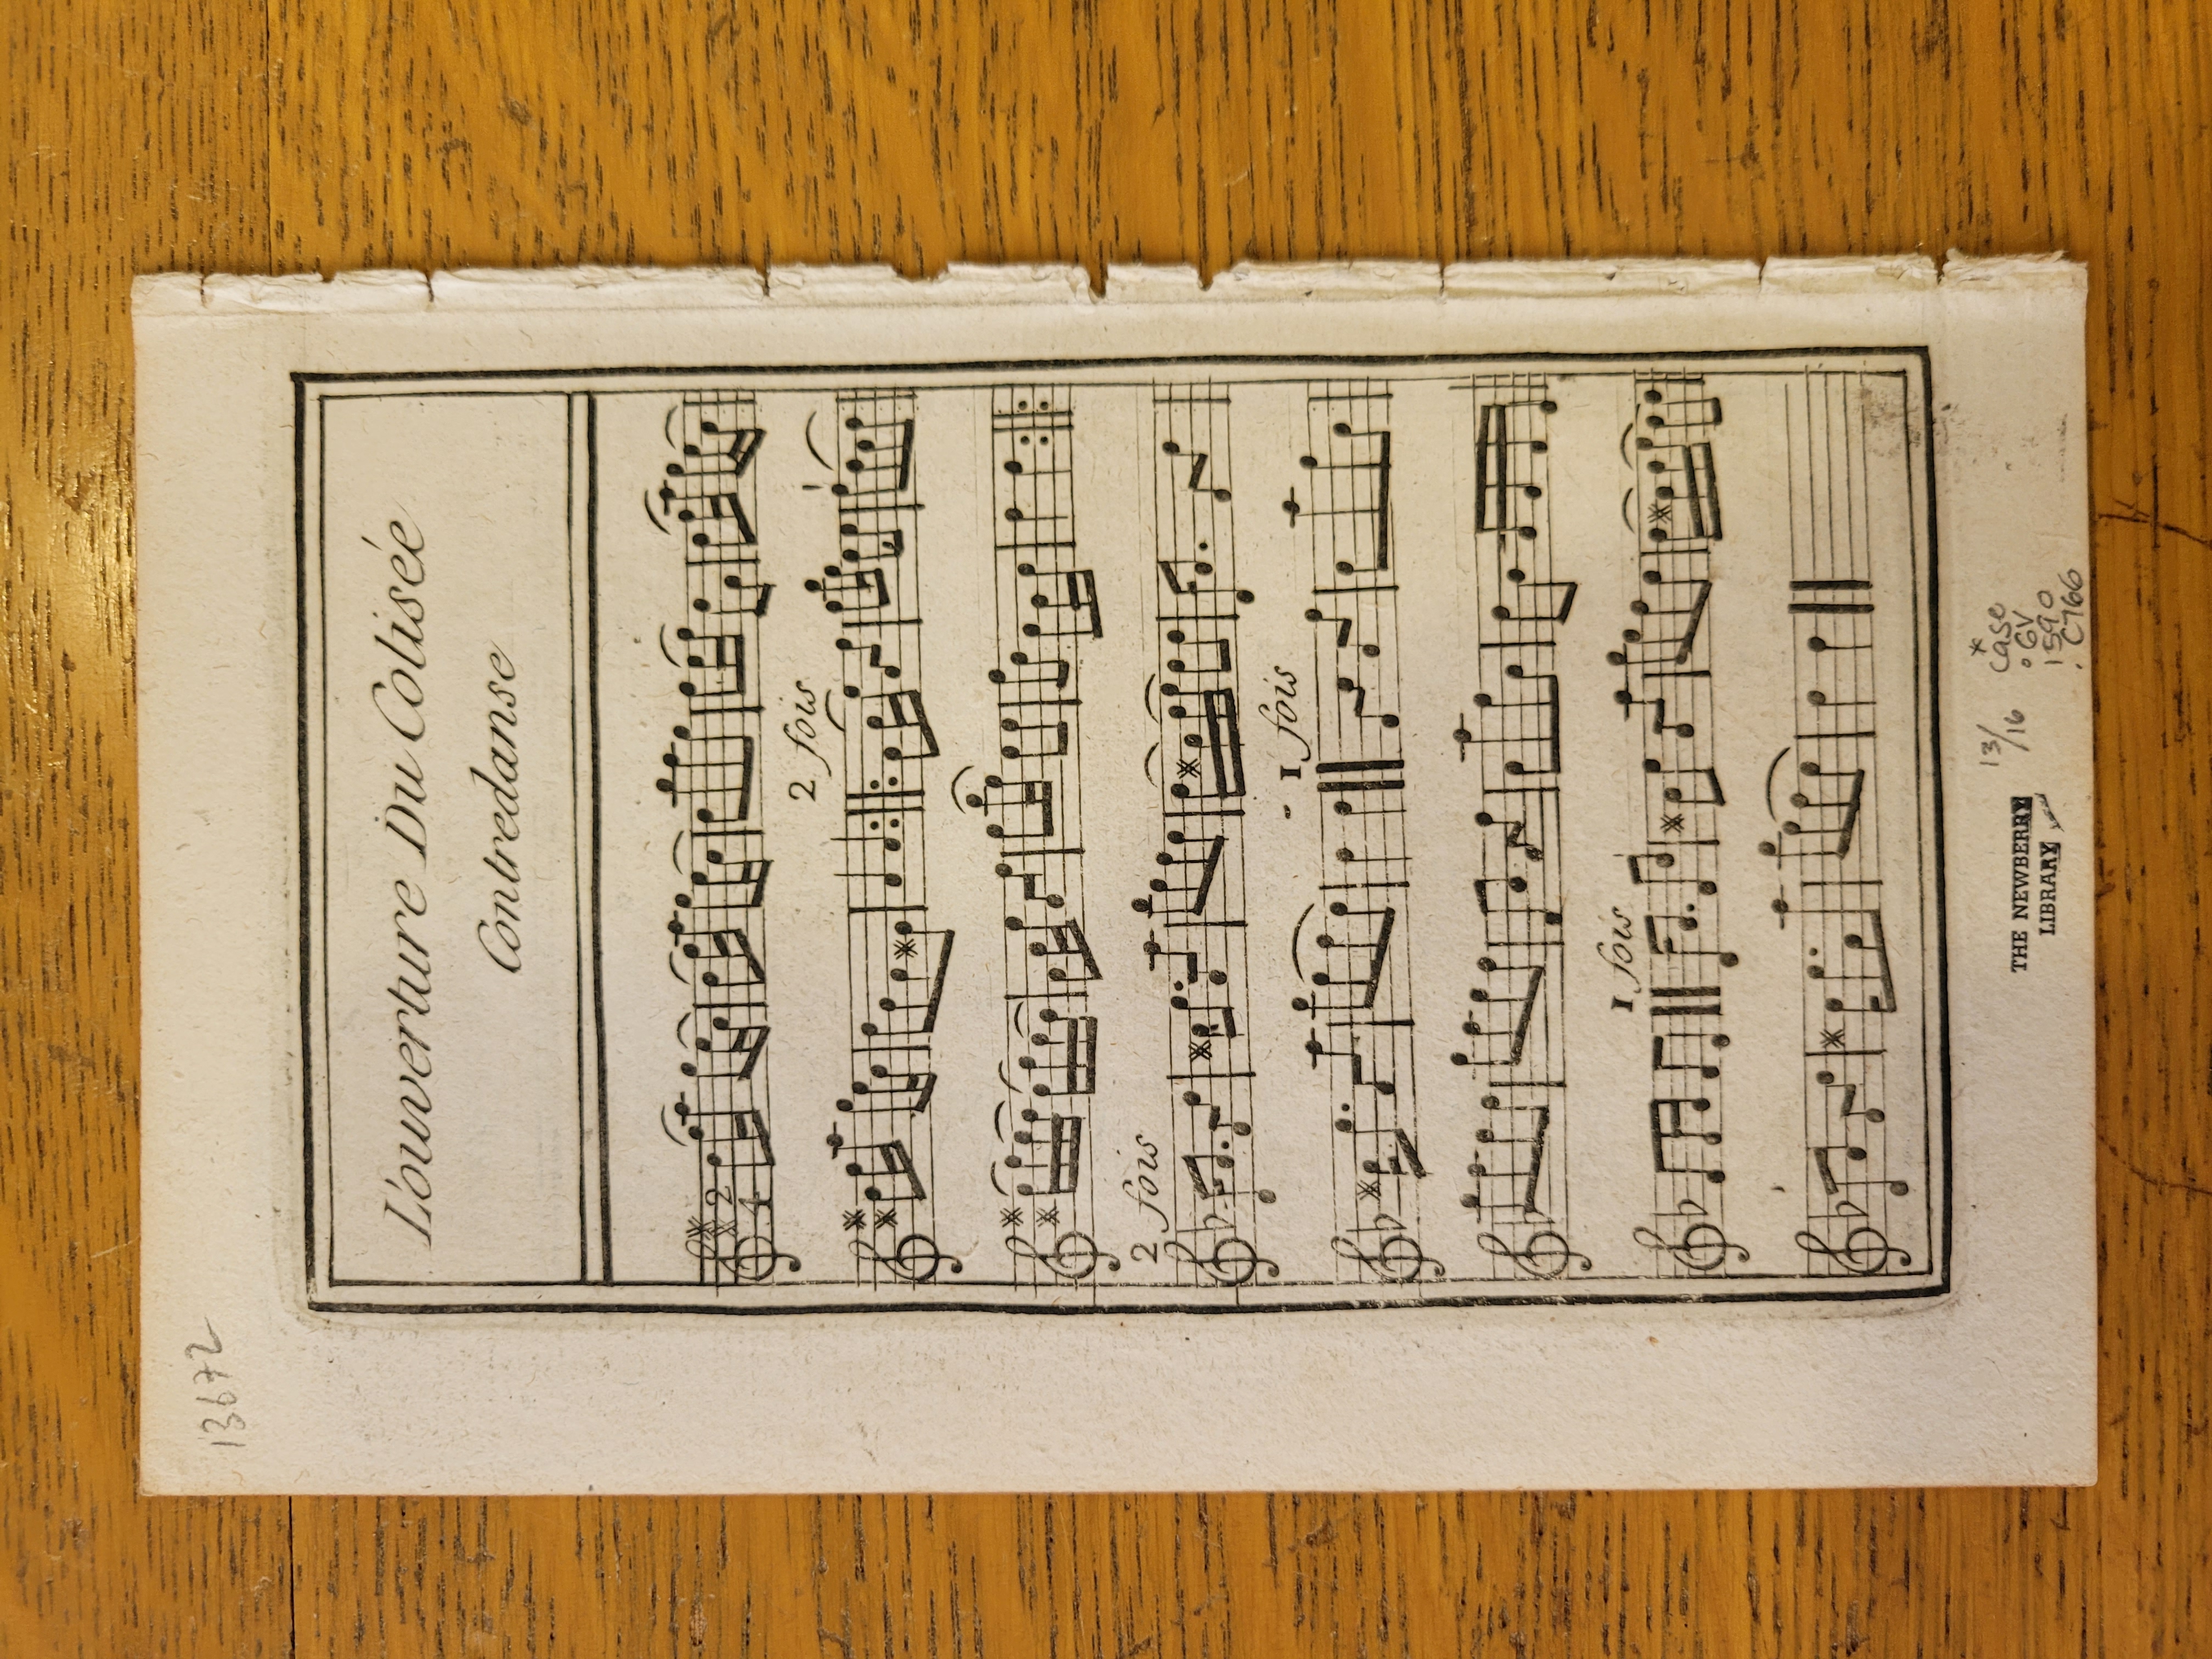 13672
L'ouverture Du Colisée
Contredanse
2 4
2 fois
2 fois
1 fois
1 fois
THE NEWBERRY
LIBRARY
13/16
*
Case
.GV
1590
.C766